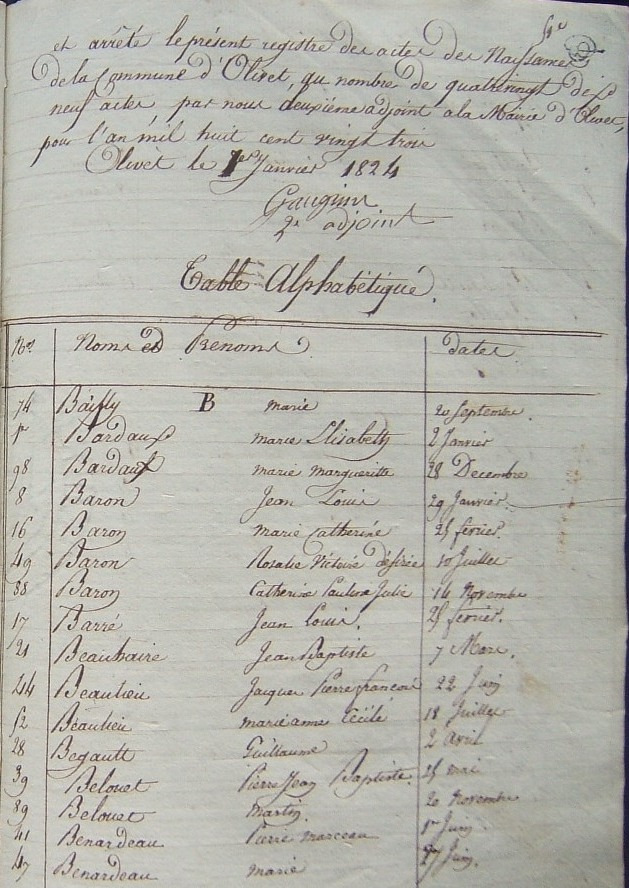 et arrêté le présent registre des actes des Naissances
de la Commune d'Olivet, au nombre de quatrevingt dix
neuf actes par nous deuxième adjoint a la Mairie d'Olivet,
pour l'an mil huit cent vingt trois
Olivet le 1er Janvier 1824
2e adjoint
Table Alphabétique.
Nos Noms et Prenoms dates
B
74 Bailly marie 20 Septembre.
1er Bardaux marie Elisabeth 2 Janvier
98 Bardaux marie margueritte 28 Decembre
8 Baron Jean Louis 29 Janvier.
16 Baron marie Catherine 25 février.
49 Baron Rosalie Victoire désirée 10 Juillet
88 Baron Catherine Pauline Julie 14 Novembre
17 Barré Jean Louis. 25 février.
21 Beauhaire Jean Baptiste 7 Mars.
44 Beaulieu Jacques Pierre francois 22 Juin
52 Beaulieu marie anne Cécile 18 Juillet
28 Begault Guillaume 2 Avril
39 Belouet Pierre Jean Baptiste. 25 mai
89 Belouet Martin. 20 Novembre
41 Benardeau Pierre marceau 1er Juin
47 Benardeau marie 27 Juin.